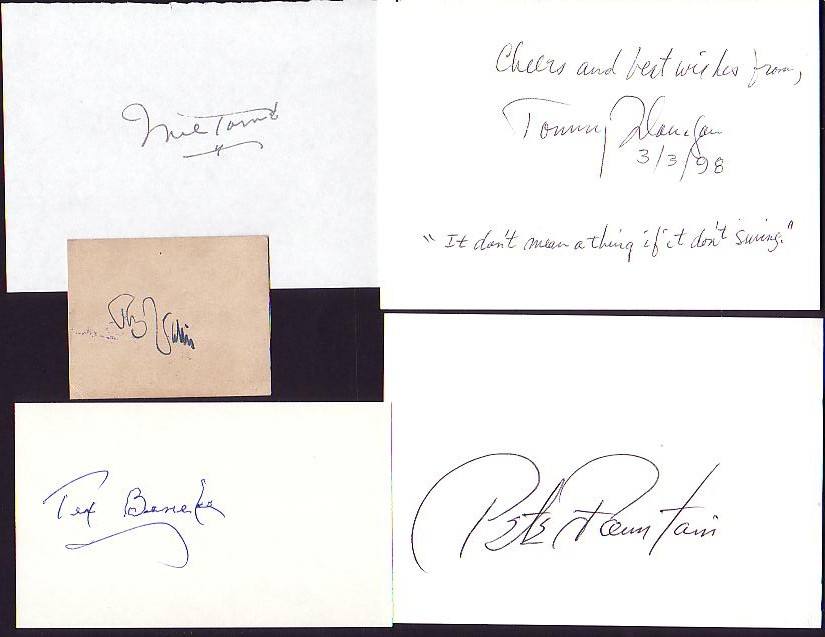 Mel Tormé
Cheers and best wishes from,
Tommy Flanagan
3/3/98
"It don't mean a thing if it don't swing."
Tex Beneke
Pete Fountain